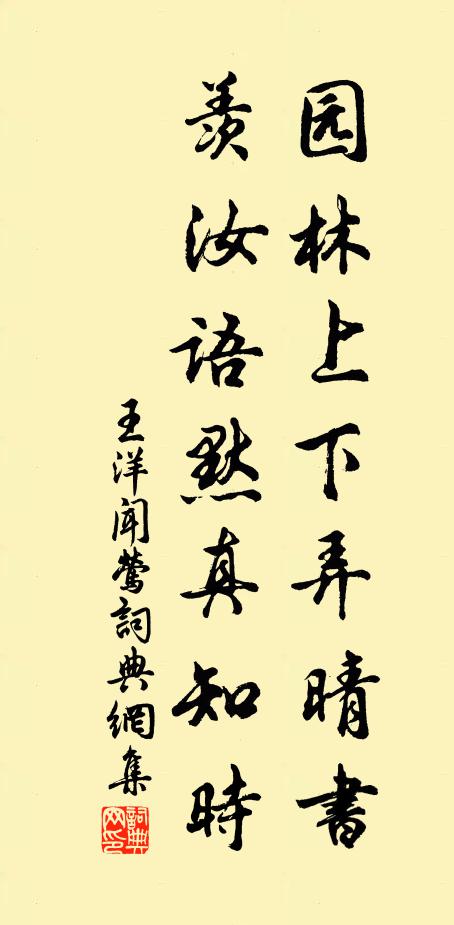 园林上下弄晴書
羡汝語默真知時
王洋闻鶯詞典網集
詞典网印